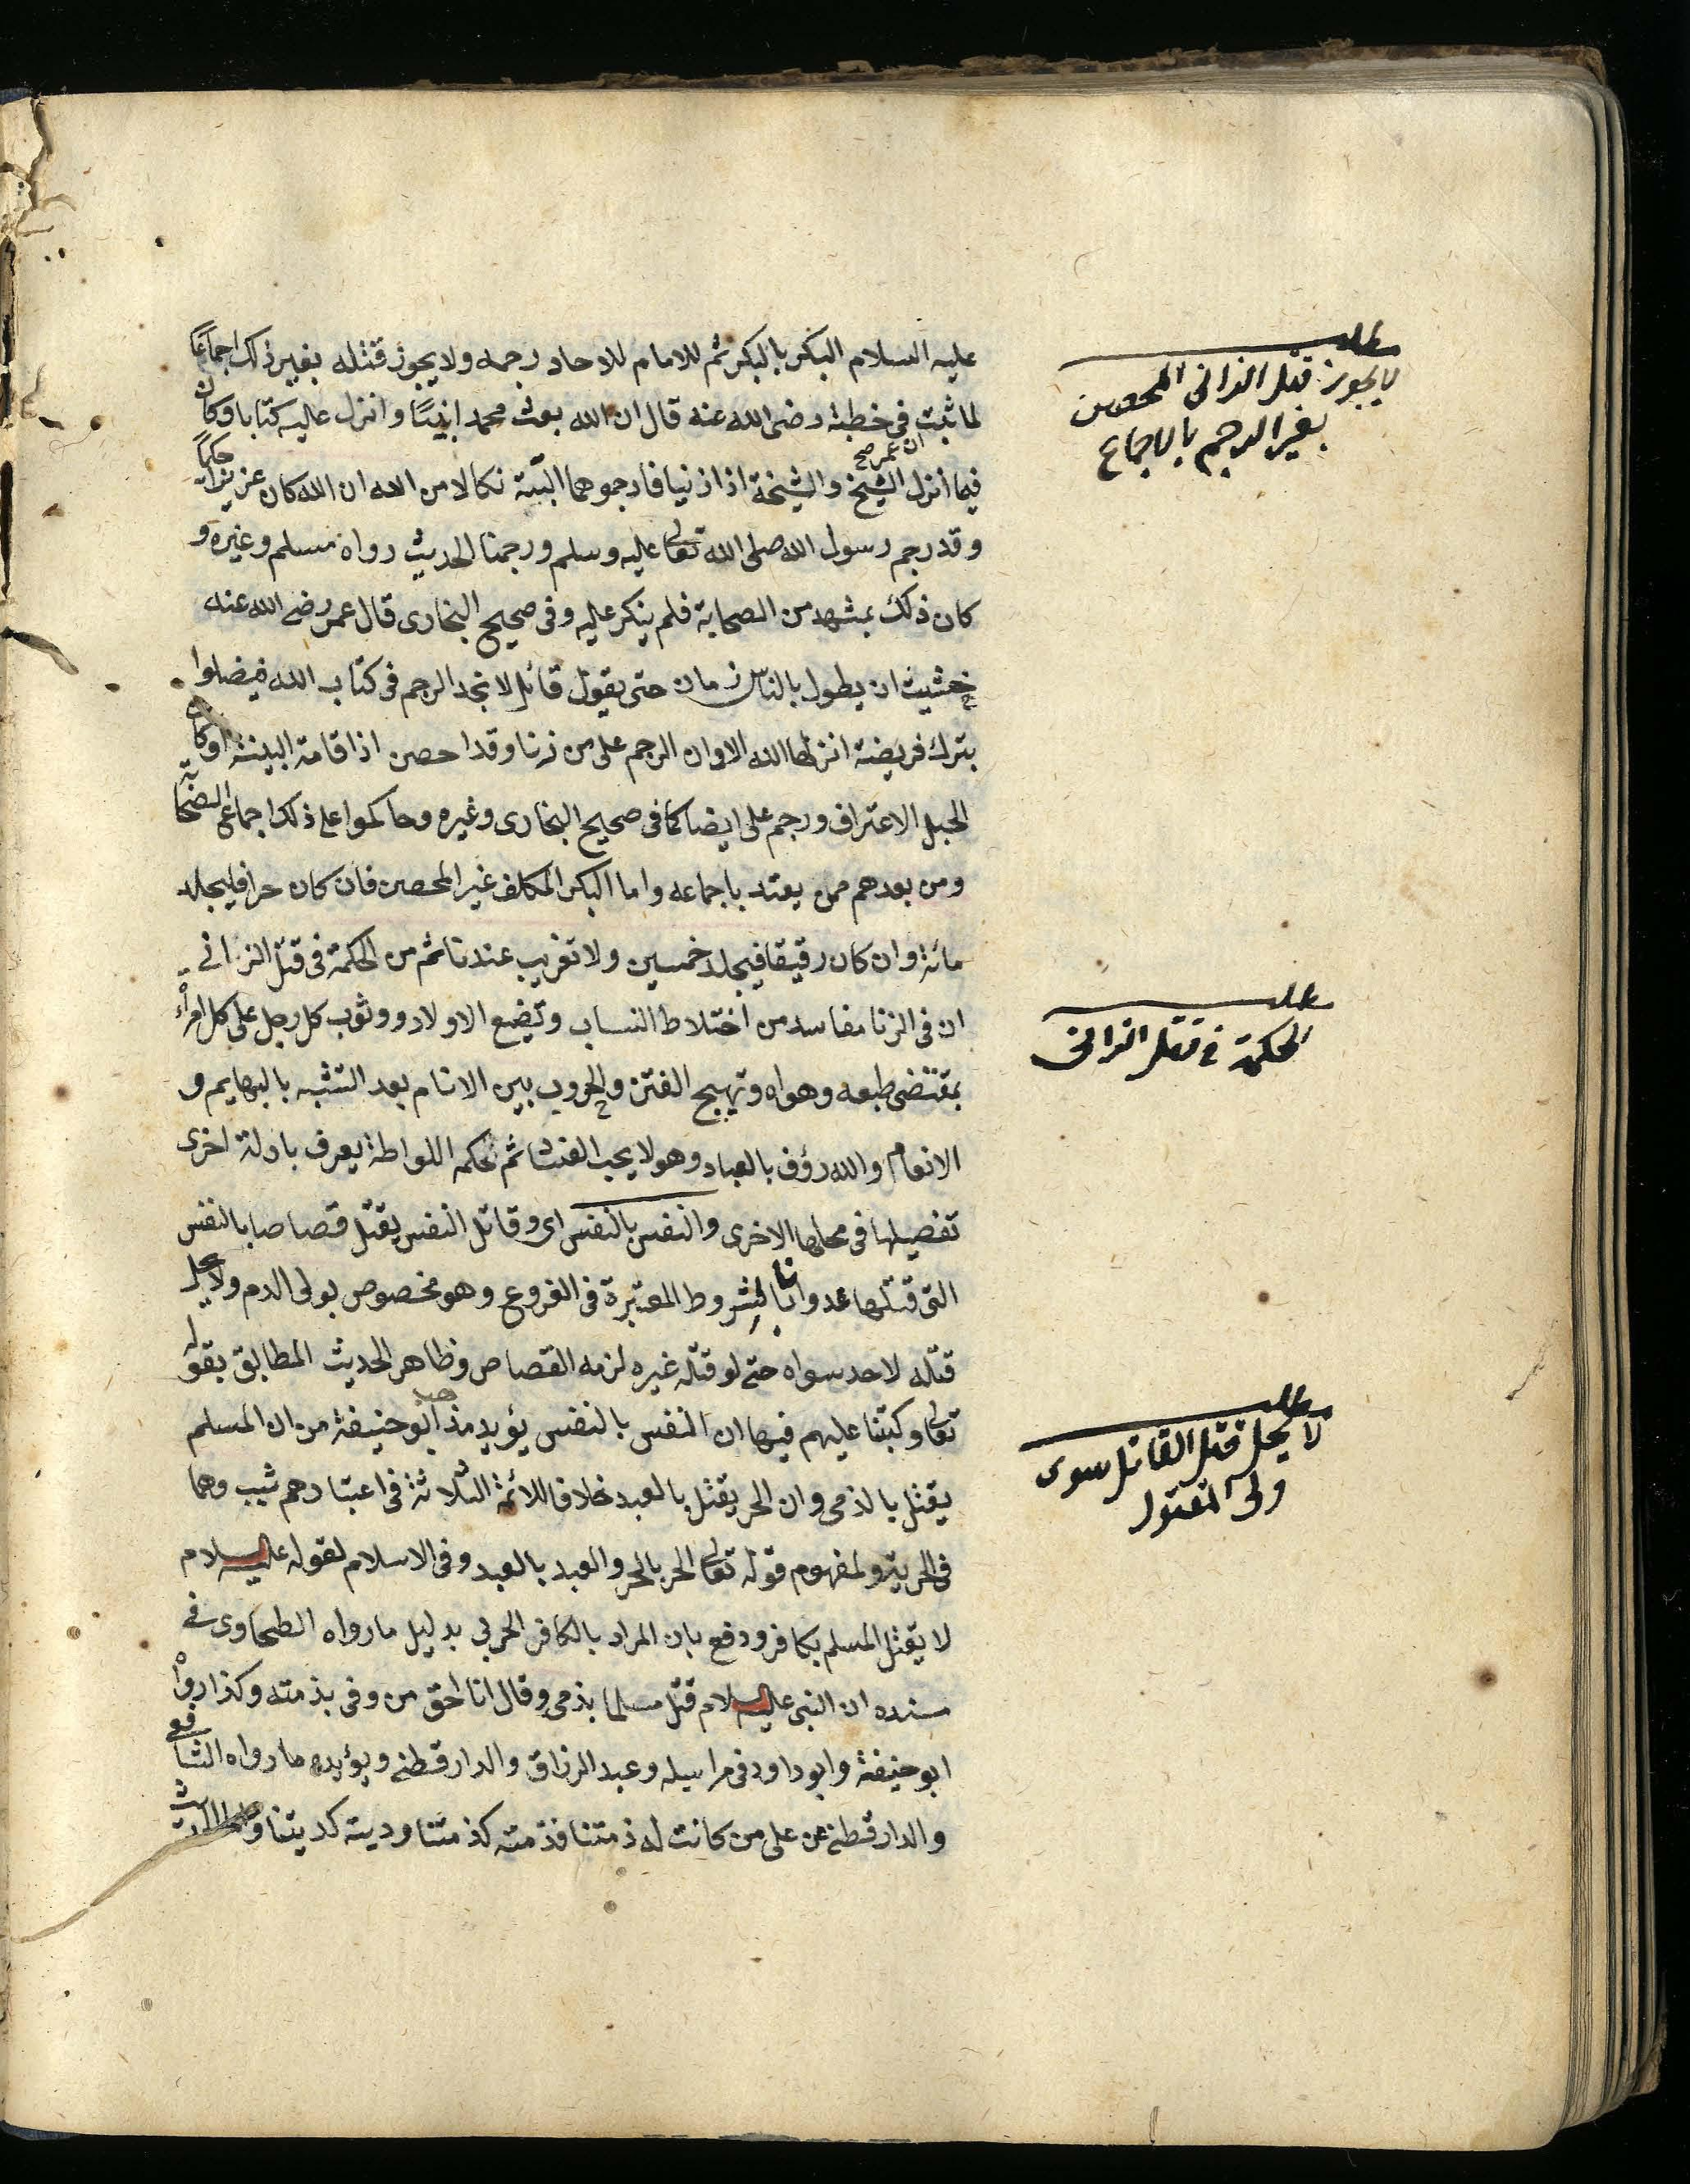 عليه السلام البكر بالبكر ثم للامام للاحاد رجمه ولا يجوز قتله بغير ذلك اجماعا
لما ثبت فى خطبة رضى الله عنه قال ان الله بعث محمدا نبيًا وانزل عليه كتابا وكان
ان عمر صح
فيما انزل الشيخ والشيخة اذا زنيا فارجموهما البتة نكالا من الله ان الله كان عزيزا حكيمًا
وقد رجم رسول الله صلى الله تعالى عليه وسلم ورجمنا الحديث رواه مسلم وغيره و
كان ذلك بمشهد من الصحابة فلم ينكر عليه وفى صحيح البخارى قال عمر رضى الله عنه
خشيت ان يطول بالناس زمان حتى يقول قائل لا نجد الرجم فى كتاب الله فيضلوا
بترك فريضة انزلها الله الا وان الرجم على من زنا وقد احصن اذا قامة البينة او كان
الحبل الاعتراف ورجم على ايضا كما فى صحيح البخارى وغيره وحاكموا على ذلك اجماع الصحابة
ومن بعدهم ممن يعتد باجماعه واما البكر المكلف غير المحصن فان كان حرا فليجلد
مائة وان كان رقيقا فيجلد خمسين ولا تغريب عندنا ثم من الحكمة فى قتل الزانى
ان فى الزنا مفاسد من اختلاط النساب وتضيع الاولاد ووثوب كل رجل على كل امرأة
بمقتضى طبعه وهواه وتهيج الفتن والحروب بين الانام بعد التشبه بالبهايم و
الانعام والله رؤف بالعباد وهو لا يحب الفشا ثم حكم اللواطة يعرف بادلة اخرى
تفصيلها فى محلها الاخرى والنفس بالنفس اى وقاتل النفس يقتل قصاصا بالنفس
التى قتلها عدوانا بالشروط المعتبرة فى الفروع وهو مخصوص بولى الدم ولا يحل
قتله لاحد سواه حتى لو قتله غيره لزمه القصاص وظاهر الحديث المطابق بقوله
تعالى وكتبنا عليهم فيها ان النفس بالنفس يؤيد مذهب ابو حنيفة من ان المسلم
يقتل بالذمى وان الحر يقتل بالعبد خلافا للائمة الثلاثة فى اعتبارهم شيب وهما
فى الحرية ولمفهوم قوله تعالى الحر بالحر والعبد بالعبد وفى الاسلام لقوله عليه السلام
لا يقتل المسلم بكافر ودفع بان المراد بالكافر الحربى بدليل ما رواه الطحاوى فى
مسنده ان النبى عليه السلام قتل مسلما بذمى وقال انا احق من وفى بذمته وكذا رواه
ابو حنيفة وابو داود فى مراسيله وعبد الرزاق والدارقطنى ويؤيده ما رواه الشافعى
والدارقطنى عن على من كانت له ذمتنا فذمته كذمتنا وديته كديتنا
مطلب
لا يجوز قتل الزانى المحصن
بغير الرجم بالاجماع
مطلب
الحكمة فى قتل الزانى
مطلب
لا يحل قتل القاتل سوى
ولى المقتول